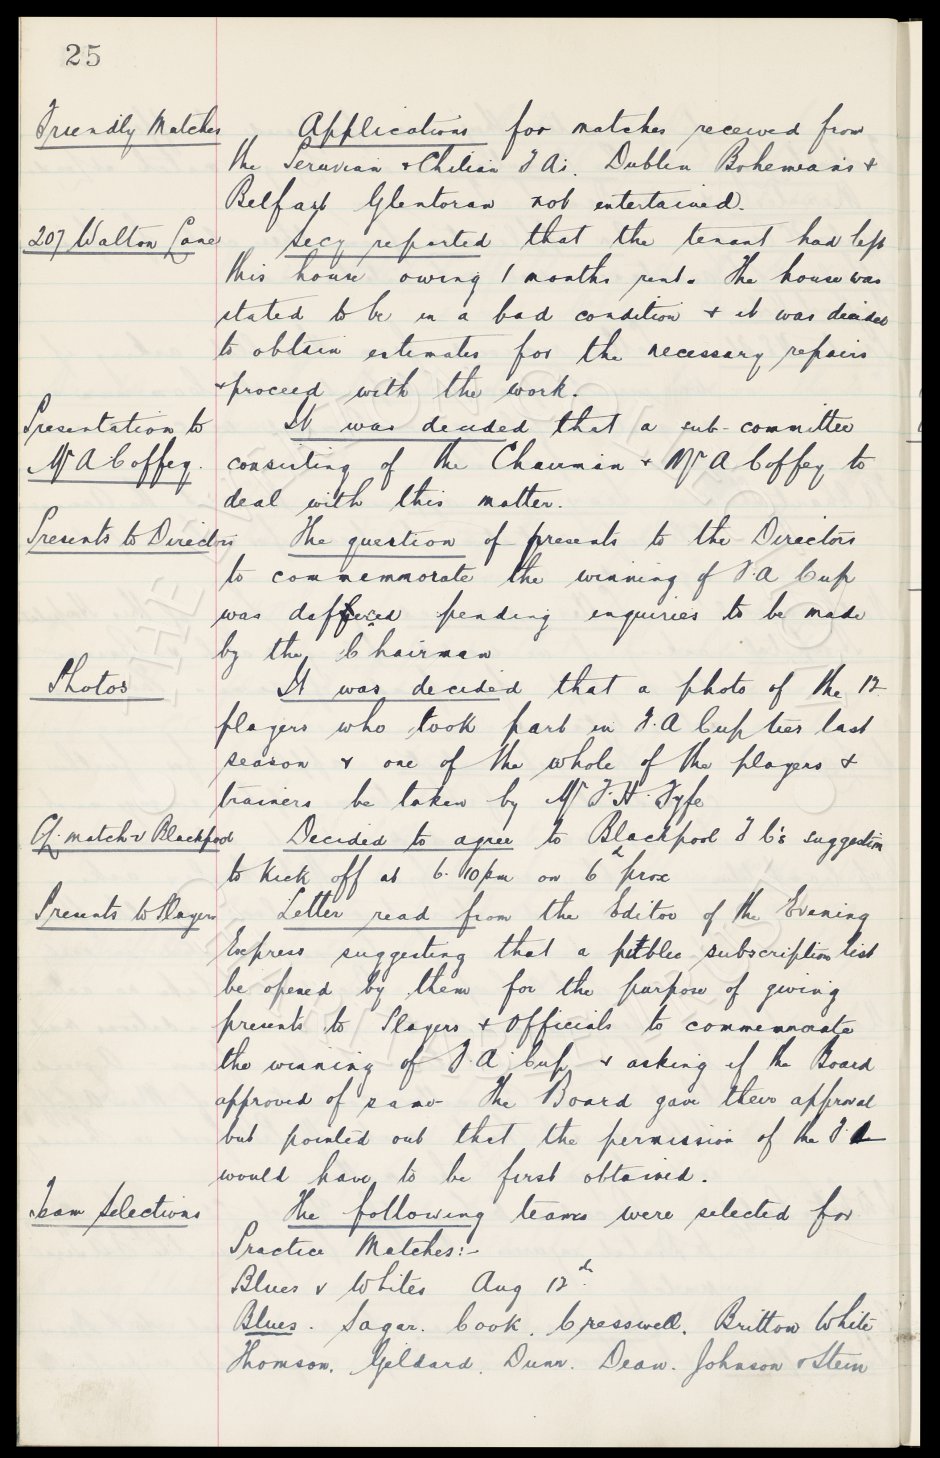 25
Friendly Matches
Applications for matches received from
the Peruvian & Chilian F As. Dublin Bohemians &
Belfast Glentoran not entertained.
207 Walton Lane
Secy reported that the tenant had left
this house owing 1 months rent. The house was
stated to be in a bad condition & it was decided
to obtain estimates for the necessary repairs
& proceed with the work.
Presentation to
Mr A Coffey.
It was decided that a sub-committee
consisting of the Chairman & Mr A Coffey to
deal with this matter.
Presents to Directors
The question of presents to the Directors
to commemmorate the winning of F.A Cup
was deferred pending enquiries to be made
by the Chairman
Photos
It was decided that a photo of the 12
players who took part in F.A Cup ties last
season & one of the whole of the players &
trainers be taken by Mr F.H. Fyfe
CL. match v Blackpool
Decided to agree to Blackpool F C's suggestion
to kick off at 6.10pm on 6th prox
Presents to Players
Letter read from the Editor of the Evening
Express suggesting that a public subscription list
be opened by them for the purpose of giving
presents to Players & Officials to commemmorate
the winning of F.A. Cup & asking if the Board
approved of same The Board gave their approval
but pointed out that the permission of the F.A
would have to be first obtained.
Team Selections
The following teams were selected for
Practice Matches:-
Blues v Whites Aug 12th
Blues. Sagar. Cook. Cresswell. Britton White
Thomson. Geldard. Dunn. Dean. Johnson & Stein